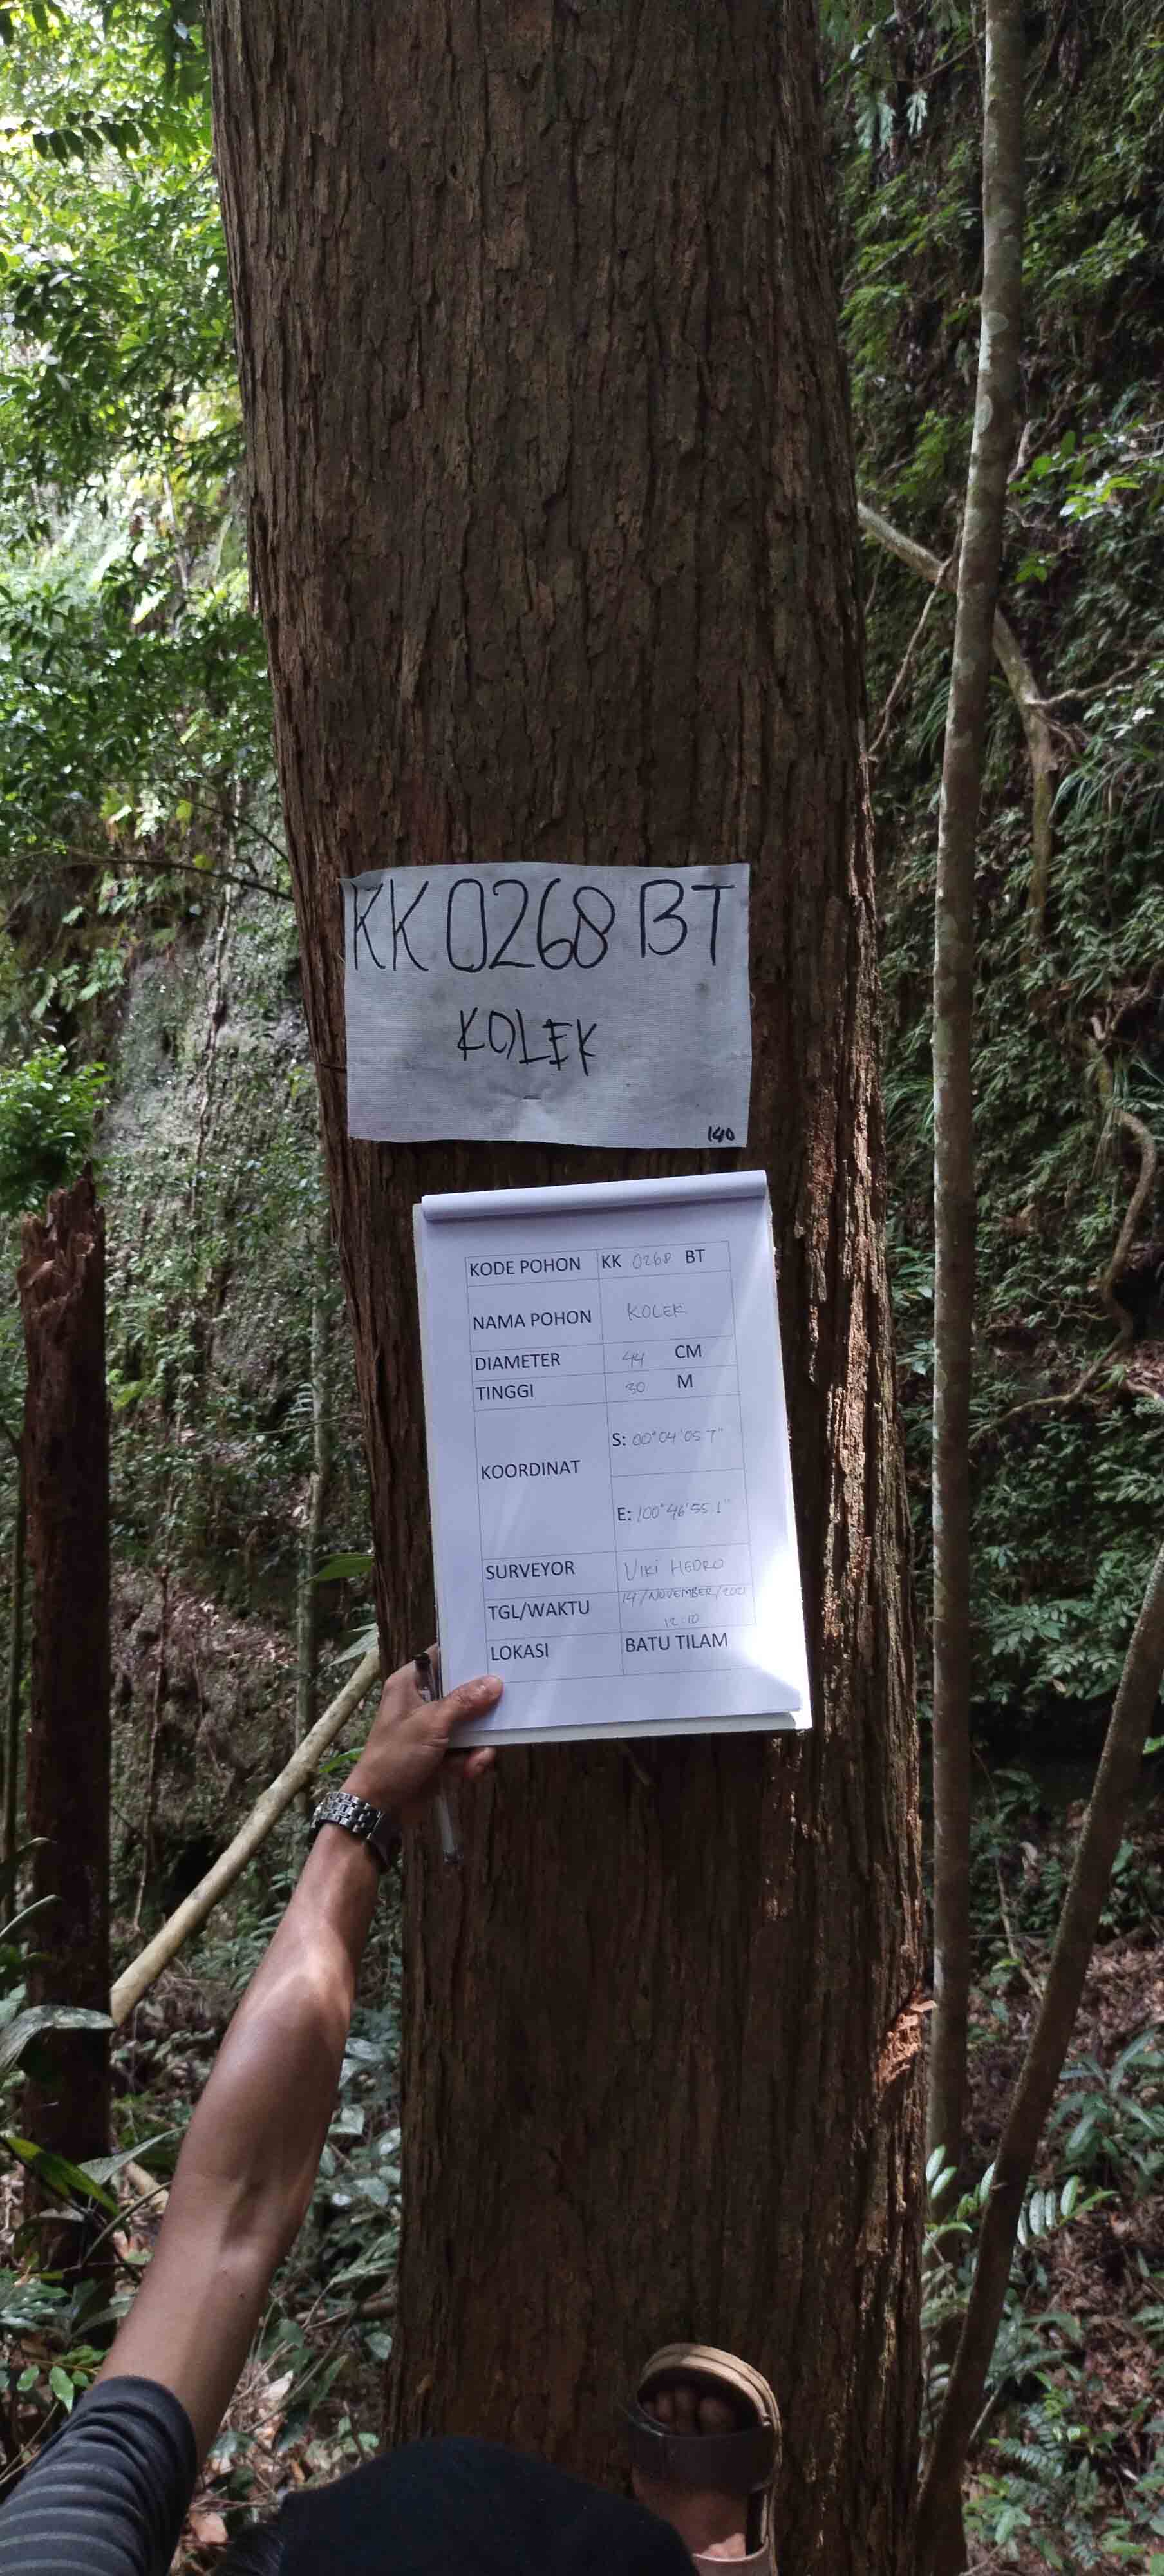 KK 0268 BT
KOLEK
140
KODE POHON KK 0268 BT
NAMA POHON KOLEK
DIAMETER 44 CM
TINGGI 30 M
KOORDINAT
S: 00°04'05.7"
E: 100°46'55.1"
SURVEYOR VIKI HEDRO
TGL/WAKTU 14/NOVEMBER/2021
12:10
LOKASI BATU TILAM